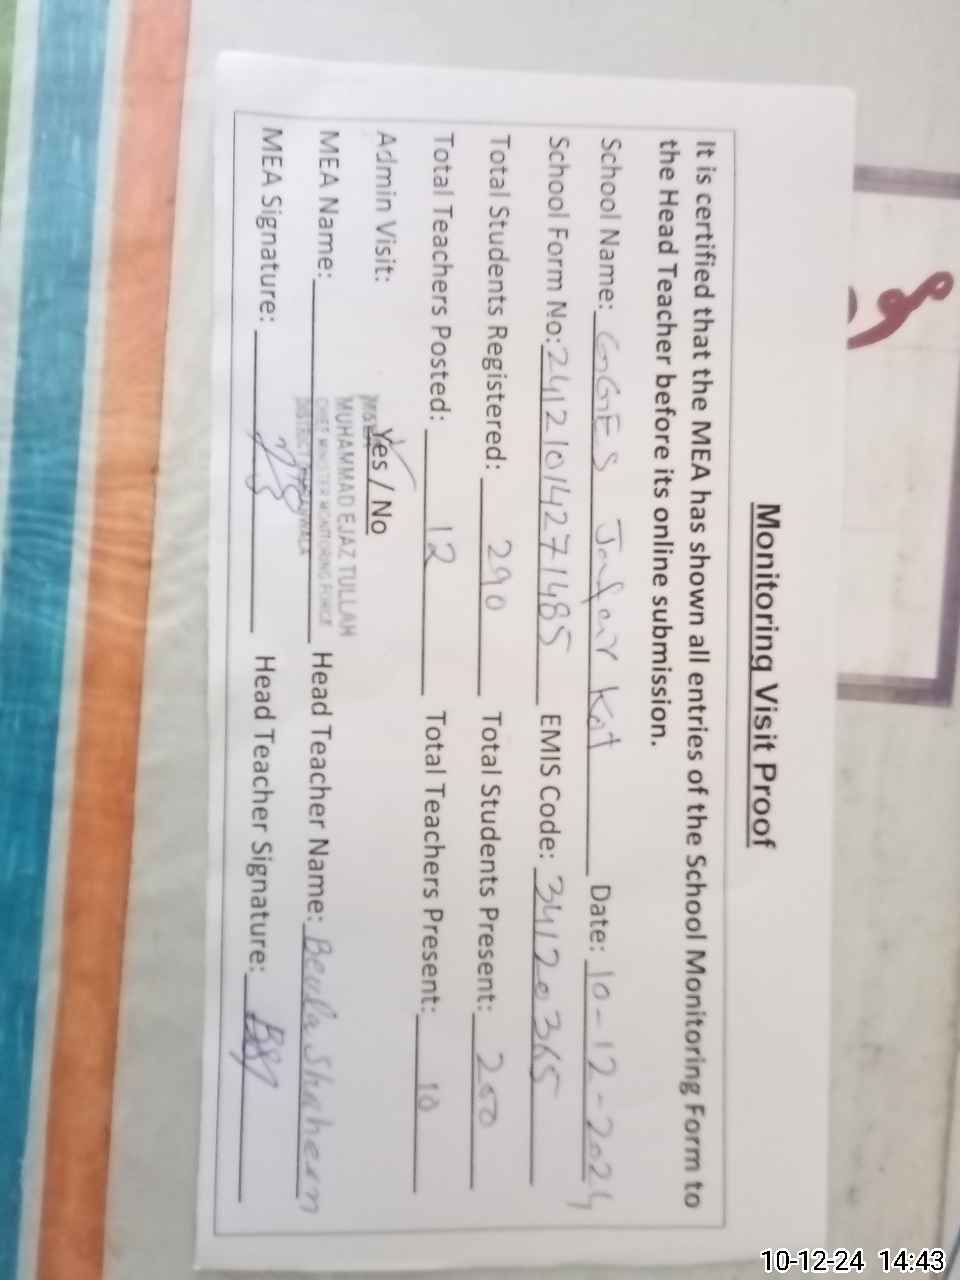 Monitoring Visit Proof
It is certified that the MEA has shown all entries of the School Monitoring Form to
the Head Teacher before its online submission.
School Name: GGES Jafar Kot Date: 10-12-2024
School Form No: 24121014271485 EMIS Code: 34120365
Total Students Registered: 290 Total Students Present: 200
Total Teachers Posted: 12 Total Teachers Present: 10
Admin Visit: Yes / No
MUHAMMAD EJAZ TULLAH
CHIEF MINISTER MONITORING FORCE
DISTRICT
MEA Name: Head Teacher Name: Beula Shaheen
MEA Signature: Head Teacher Signature:
10-12-24 14:43